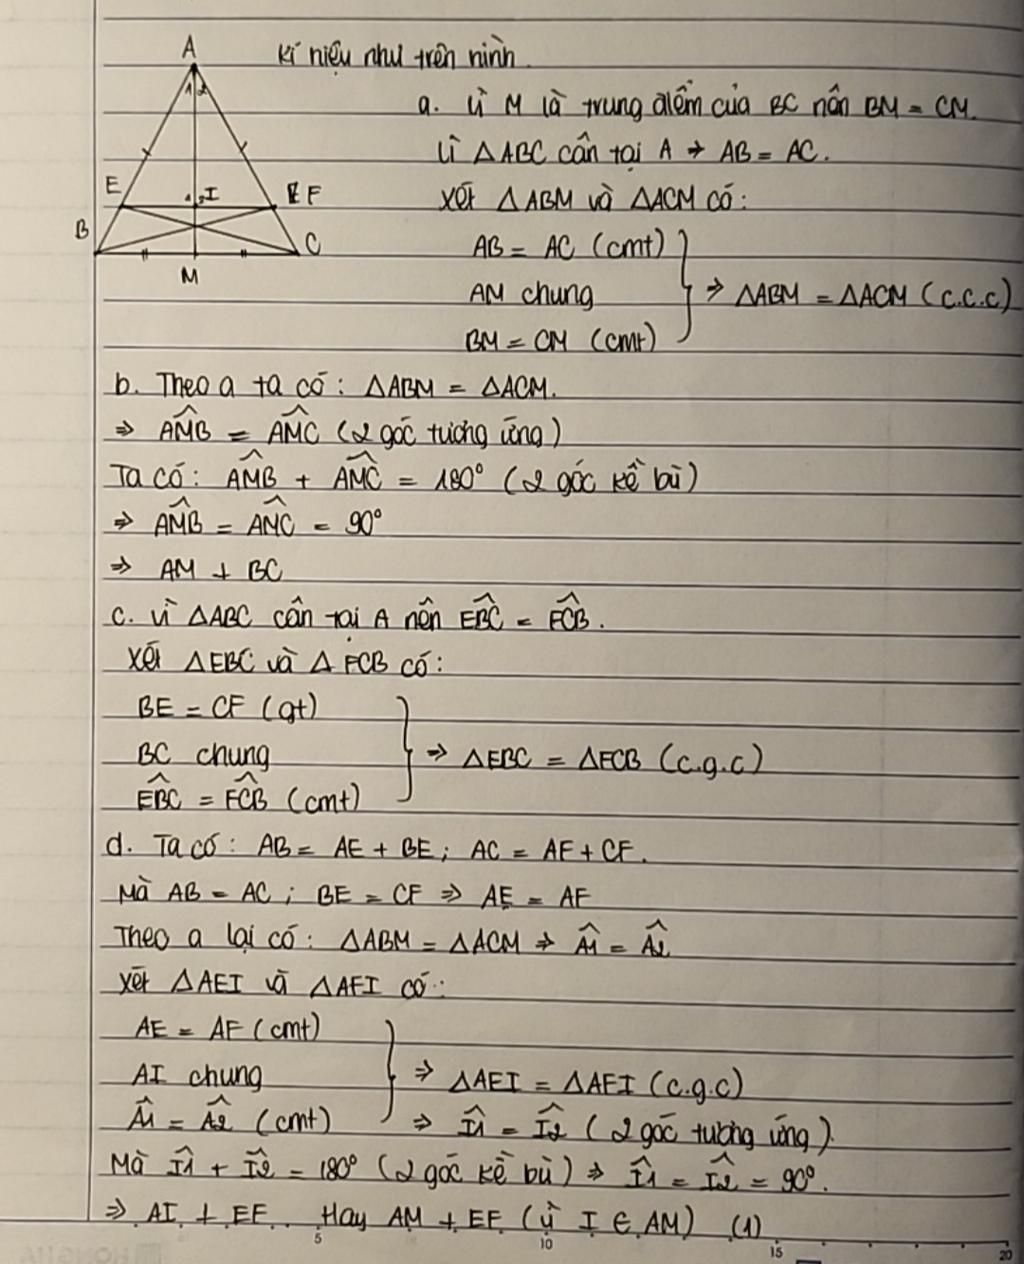 A
Kí hiệu như trên hình.
1 2
a. Vì M là trung điểm của BC nên BM = CM.
Vì △ABC cân tại A ⇒ AB = AC.
E
1 2 I
F
Xét △ABM và △ACM có:
B
C
M
AB = AC (cmt)
AM chung
⇒ △ABM = △ACM (c.c.c)
BM = CM (cmt)
b. Theo a ta có: △ABM = △ACM.
⇒ \widehat{AMB} = \widehat{AMC} (2 góc tương ứng)
Ta có: \widehat{AMB} + \widehat{AMC} = 180° (2 góc kề bù)
⇒ \widehat{AMB} = \widehat{AMC} = 90°
⇒ AM ⊥ BC
c. Vì △ABC cân tại A nên \widehat{EBC} = \widehat{FCB}.
Xét △EBC và △FCB có:
BE = CF (gt)
BC chung
⇒ △EBC = △FCB (c.g.c)
\widehat{EBC} = \widehat{FCB} (cmt)
d. Ta có: AB = AE + BE; AC = AF + CF.
Mà AB = AC; BE = CF ⇒ AE = AF
Theo a lại có: △ABM = △ACM ⇒ \widehat{A1} = \widehat{A2}
Xét △AEI và △AFI có:
AE = AF (cmt)
AI chung
⇒ △AEI = △AFI (c.g.c)
\widehat{A1} = \widehat{A2} (cmt)
⇒ \widehat{I1} = \widehat{I2} (2 góc tương ứng).
Mà \widehat{I1} + \widehat{I2} = 180° (2 góc kề bù) ⇒ \widehat{I1} = \widehat{I2} = 90°.
⇒ AI ⊥ EF. Hay AM ⊥ EF (vì I ∈ AM) (1)
5 10 15 20